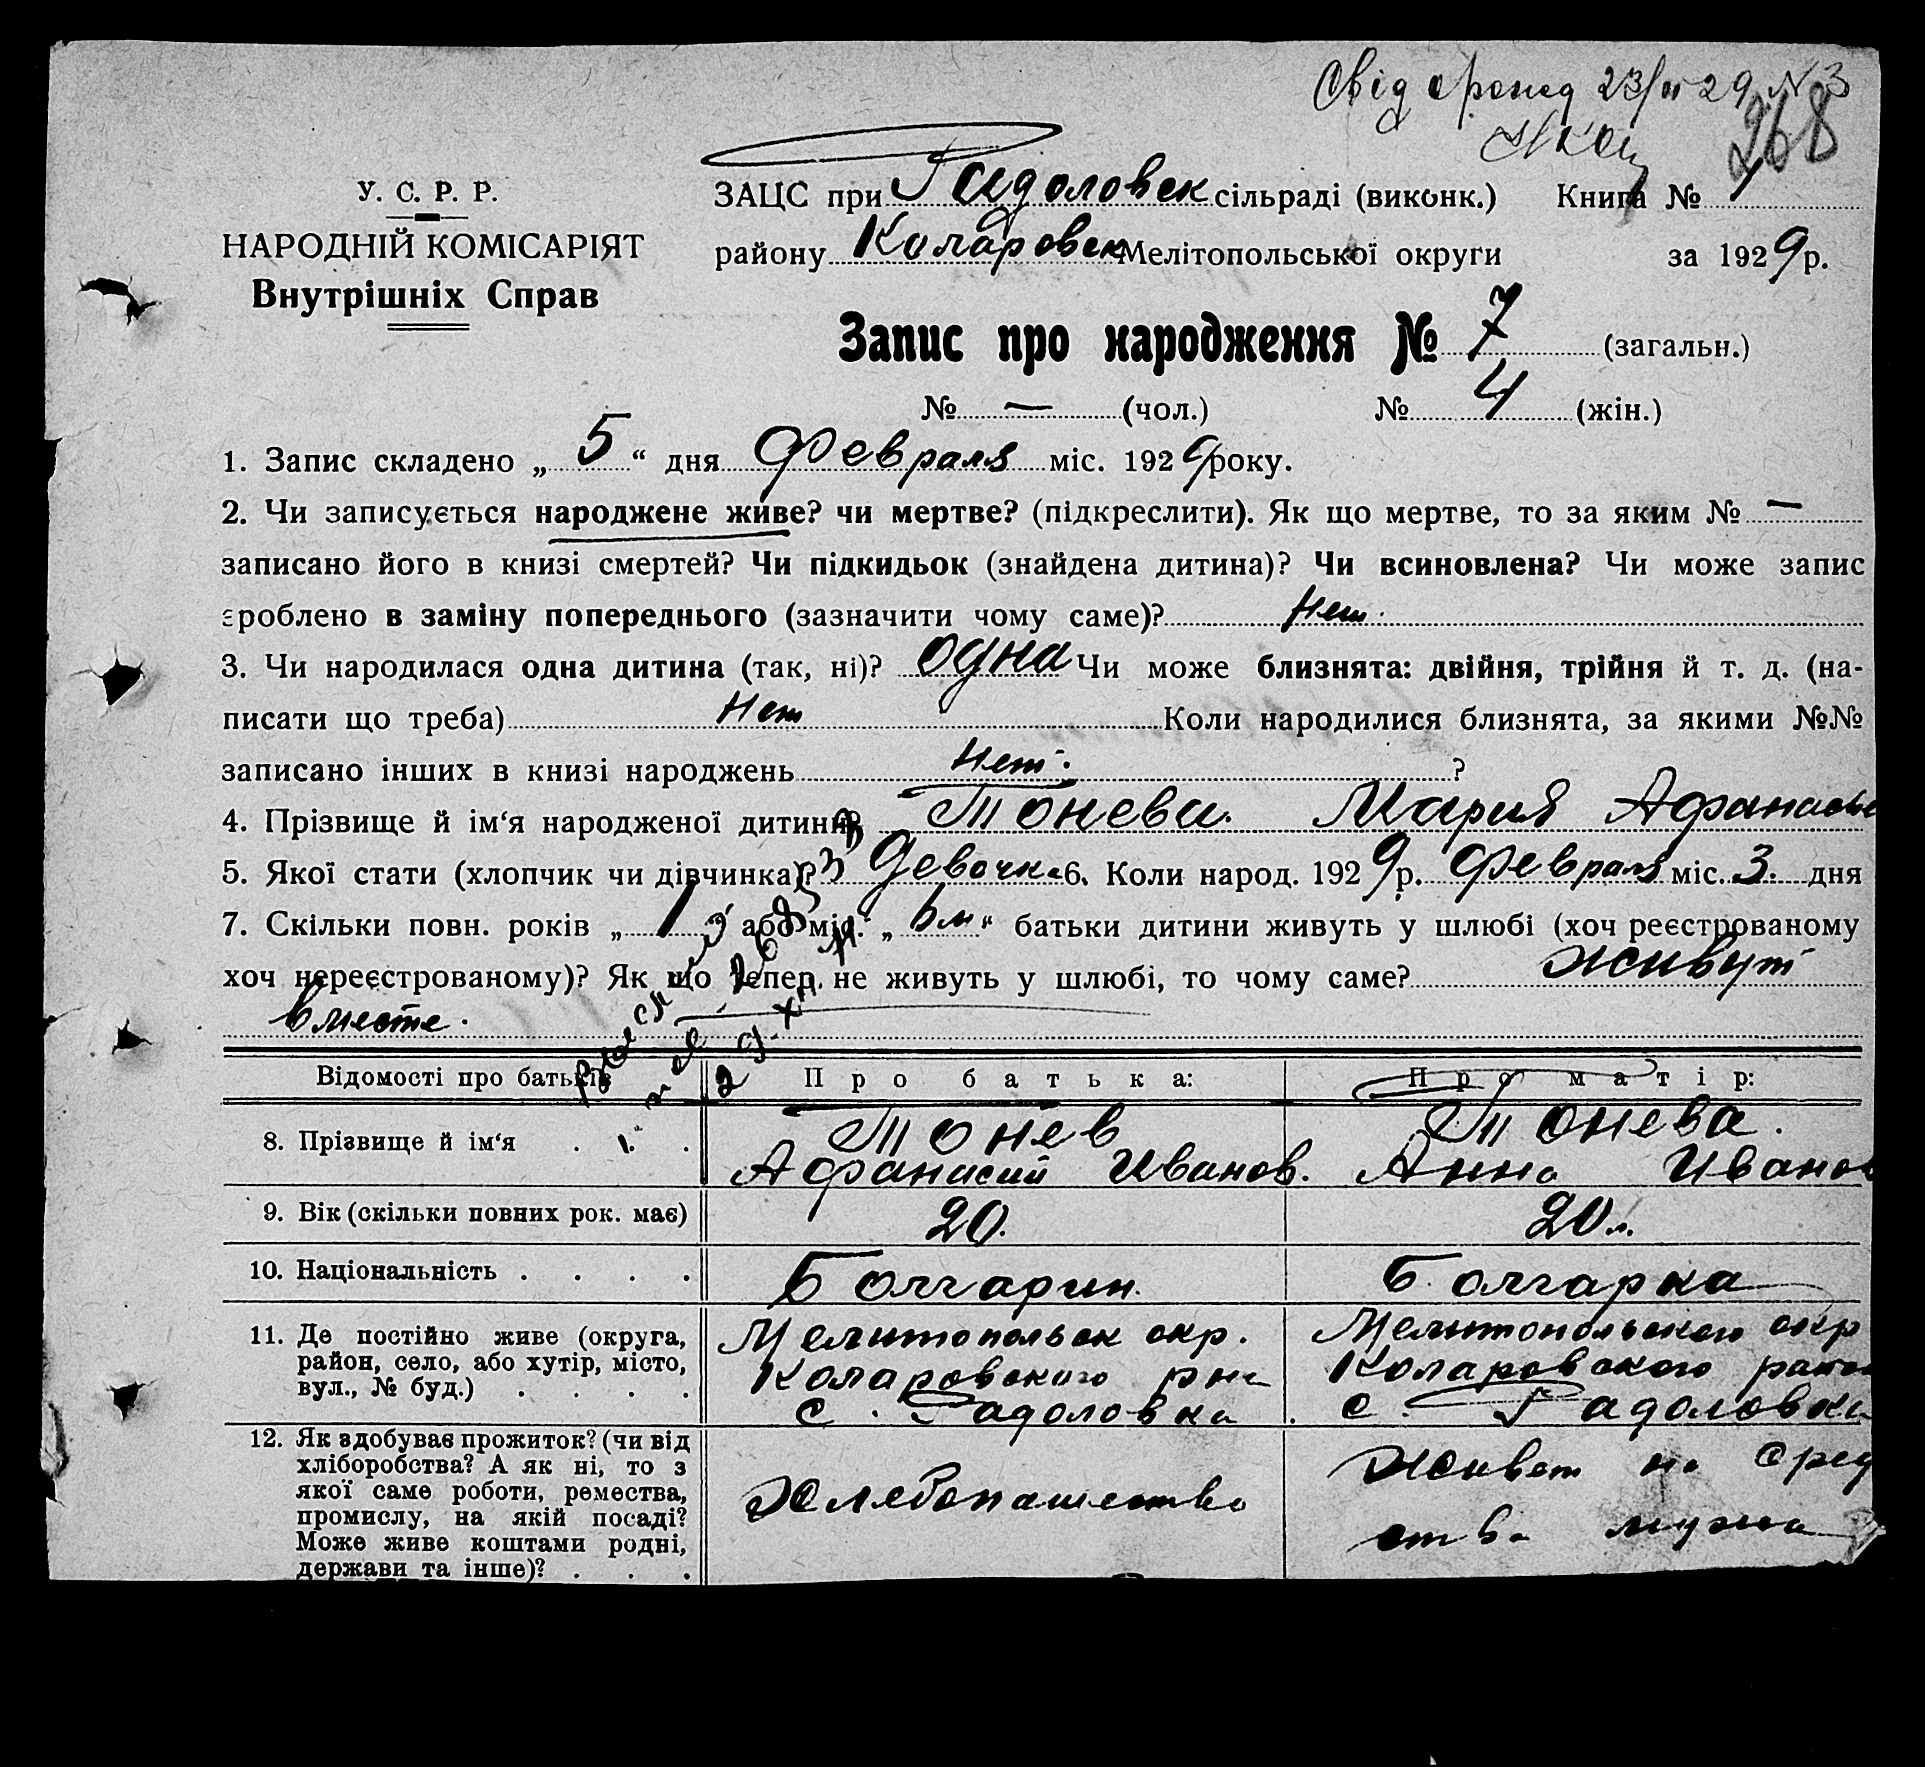 Свід 23/II 29 N 3
268
У. С. Р. Р.
НАРОДНІЙ КОМІСАРІЯТ
Внутрішніх Справ
ЗАЦС при Радоловск сільраді (виконк.) Книга № 1
району Коларовск Мелітопольської округи за 1929 р.
Запис про народження № 7 (загальн.)
№ — (чол.) № 4 (жін.)
1. Запис складено „ 5 “ дня Февраля міс. 1929 року.
2. Чи записується народжене живе? чи мертве? (підкреслити). Як що мертве, то за яким № —
записано його в книзі смертей? Чи підкидьок (знайдена дитина)? Чи всиновлена? Чи може запис
зроблено в заміну попереднього (зазначити чому саме)? Нет.
3. Чи народилася одна дитина (так, ні)? одна Чи може близнята: двійня, трійня й т. д. (на-
писати що треба) Нет Коли народилися близнята, за якими №№
записано інших в книзі народжень Нет. ?
4. Прізвище й ім‘я народженої дитини? Тонева. Мария Афанасье
5. Якої стати (хлопчик чи дівчинка)? Девочка 6. Коли народ. 1929 р. Февраля міс. 3. дня
7. Скільки повн. років „ 1 “ або міс. „ 6 м “ батьки дитини живуть у шлюбі (хоч реєстрованому
хоч нереєстрованому)? Як що тепер не живуть у шлюбі, то чому саме? Живут
вместе.
Відомості про батьків Про батька: Про матір:
8. Прізвище й ім‘я . . . Тонев Тонева.
Афанасий Иванов. Анна Иванов
9. Вік (скільки повних рок. має) 20. 20 л.
10. Національність . . . . Болгарин. Болгарка
11. Де постійно живе (округа, Мелитопольск окр. Мелитопольского окр
район, село, або хутір, місто, Коларовского рна Коларовского район
вул., № буд.) . . . . с. Радоловка с. Радоловка
12. Як здобуває прожиток? (чи від
хліборобства? А як ні, то з Живет на сред
якої саме роботи, ремества, Хлебопашество
промислу, на якій посаді? ства мужа
Може живе коштами родні,
держави та інше)? . . .